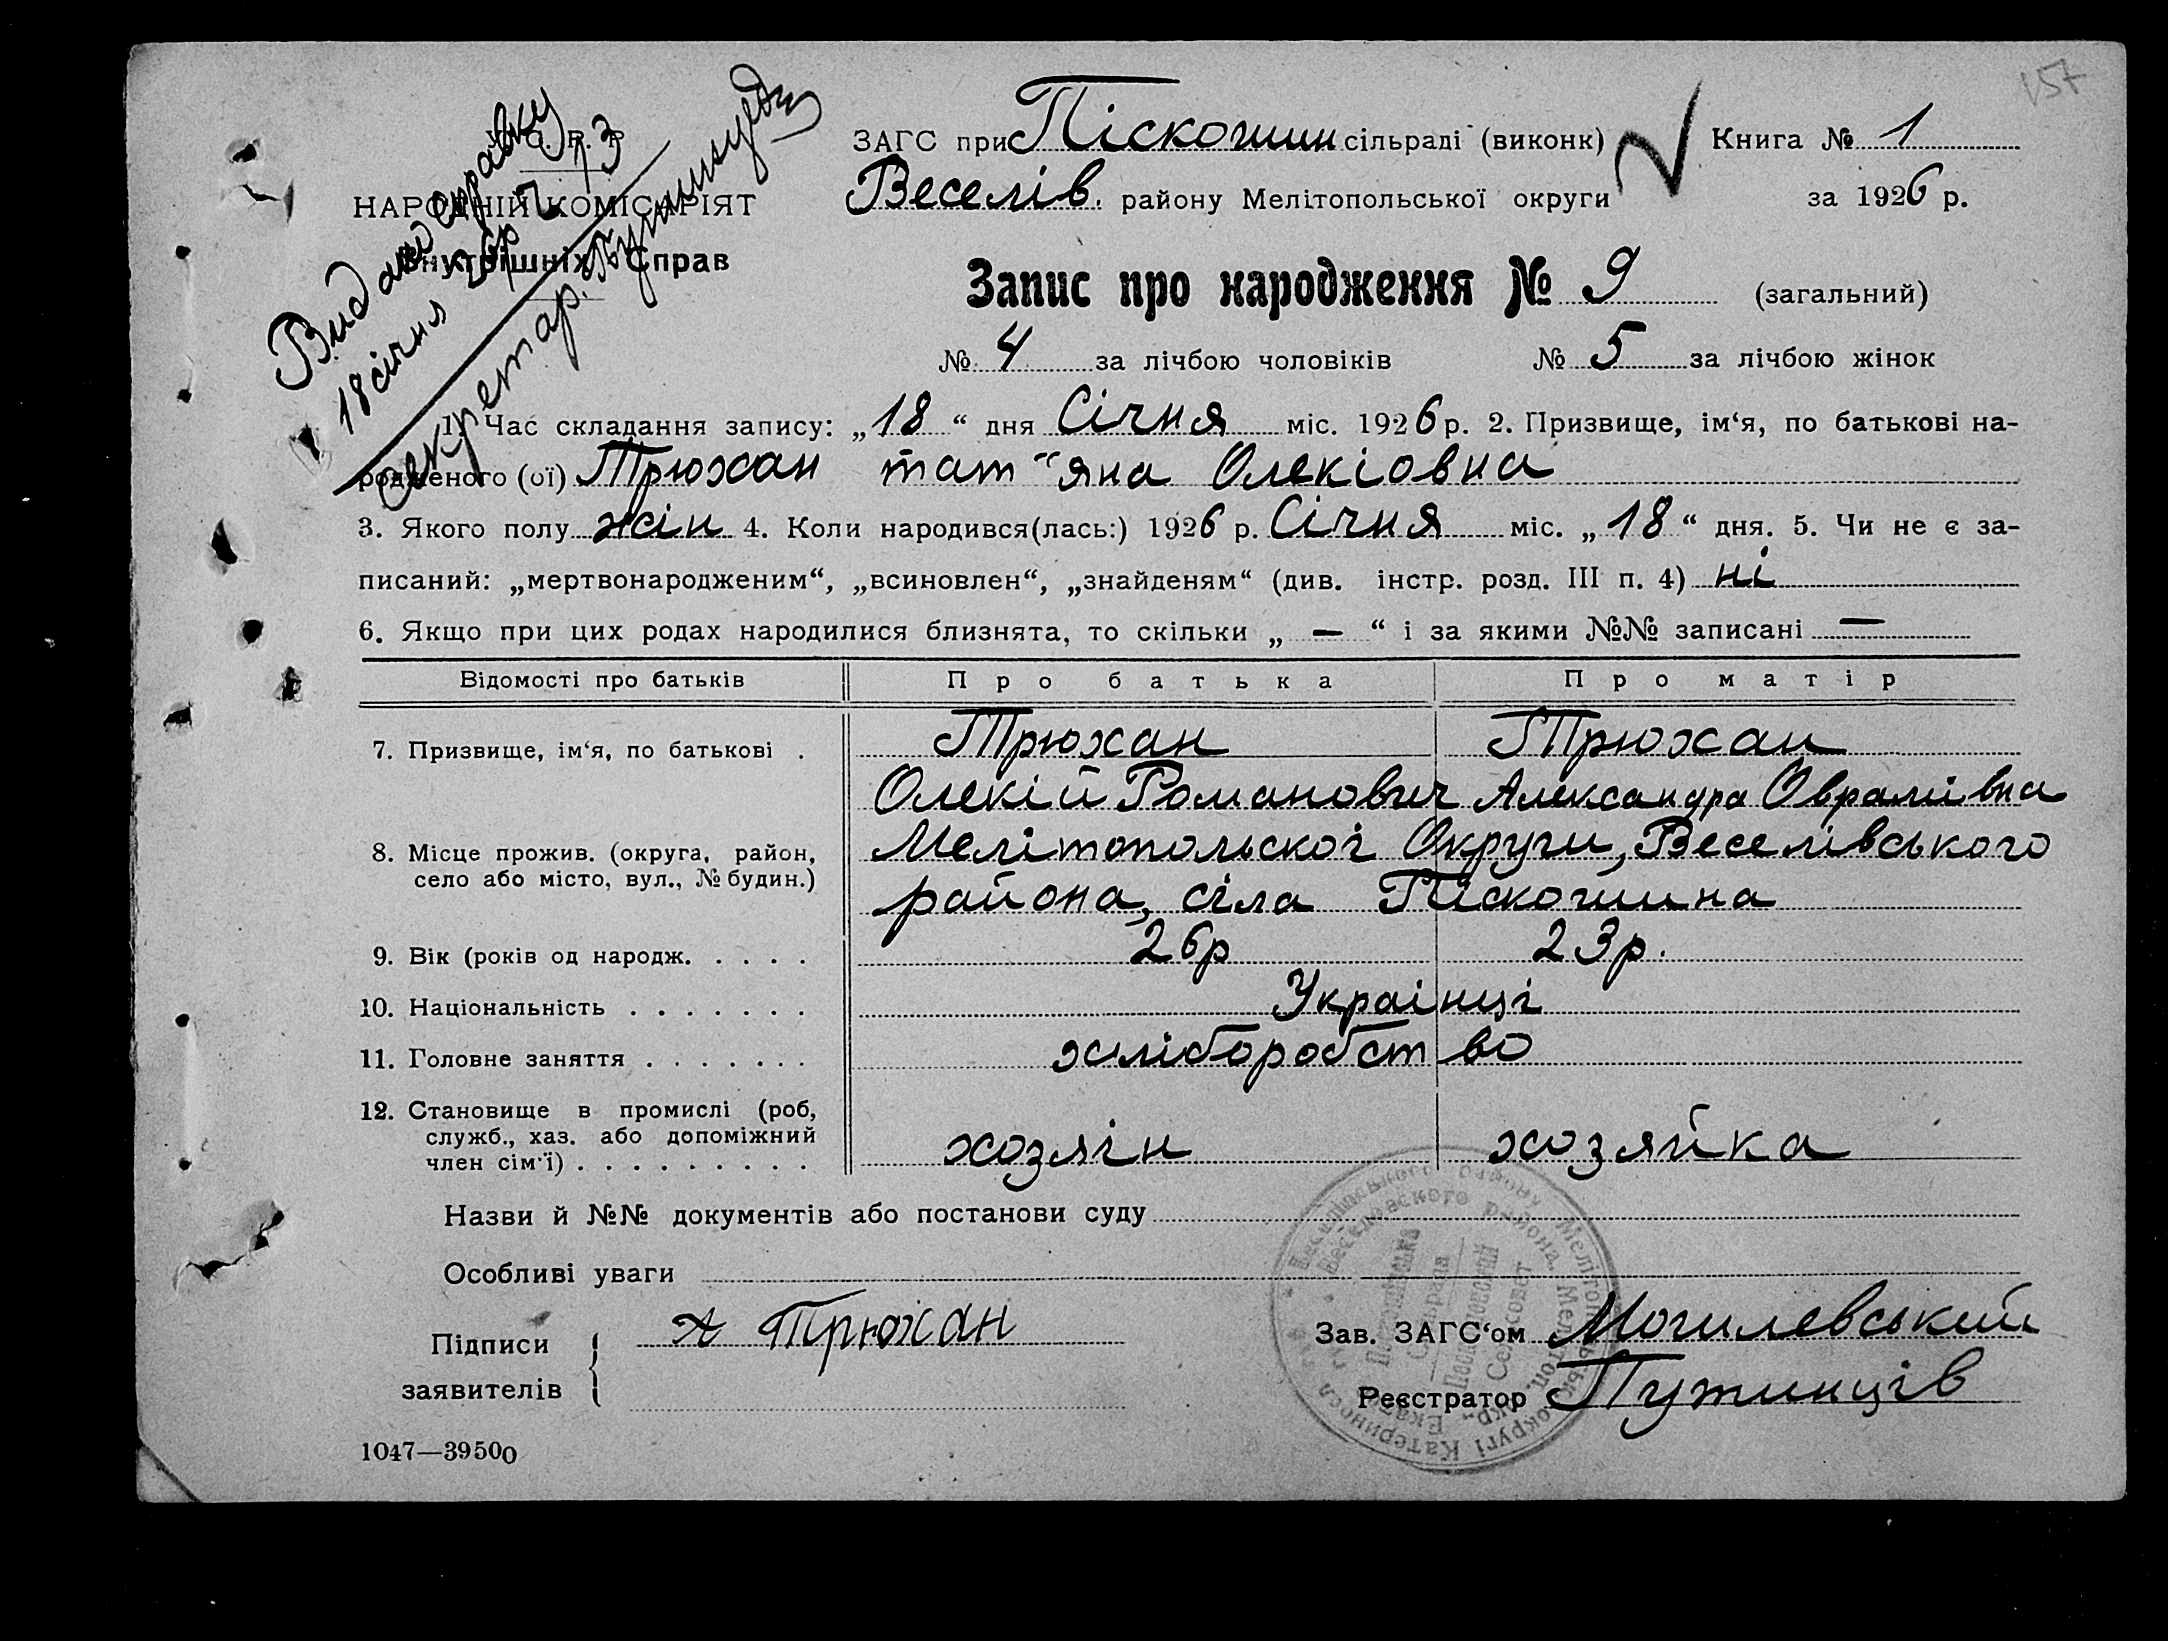 157
У. С. Р. Р.
НАРОДНІЙ КОМІСАРІЯТ
Внутрішніх Справ
Видано справку
18 січня 26р № 13
Секретар
ЗАГС при Піскошин сільраді (виконк) Книга № 1
Веселів. району Мелітопольської округи за 1926 р.
Запис про народження № 9 (загальний)
№ 4 за лічбою чоловіків № 5 за лічбою жінок
1. Час складання запису: „18“ дня Січня міс. 1926 р. 2. Призвище, ім‘я, по батькові на-
родженого (ої) Трюхан тат“яна Олекіовна
3. Якого полу жін 4. Коли народився(лась:) 1926 р. Січня міс. „18“ дня. 5. Чи не є за-
писаний: „мертвонародженим“, „всиновлен“, „знайденям“ (див. інстр. розд. III п. 4) ні
6. Якщо при цих родах народилися близнята, то скільки „ — “ і за якими №№ записані —
Відомості про батьків Про батька Про матір
7. Призвище, ім‘я, по батькові . Трюхан Трюхан
Олекій Романович Александра Оврамівна
8. Місце прожив. (округа, район, Мелітопольскоі Округи, Веселівського
село або місто, вул., № будин.) района, сіла Піскошина
9. Вік (років од народж. . . . . 26р 23р.
10. Національність . . . . . . . Українці
11. Головне заняття . . . . . . . хліборобство
12. Становище в промислі (роб,
служб., хаз. або допоміжний
член сім‘ї) . . . . . . . . . хозяін хозяйка
Назви й №№ документів або постанови суду
Особливі уваги
Підписи А Трюхан Зав. ЗАГС‘ом Могилевський
заявителів Реєстратор Путинців
Веселівського району Мелітопольськ. округі Катериносл
Веселовского района, Мелитоп. окр. Екат
Сільрада
Сельсовет
1047—39500